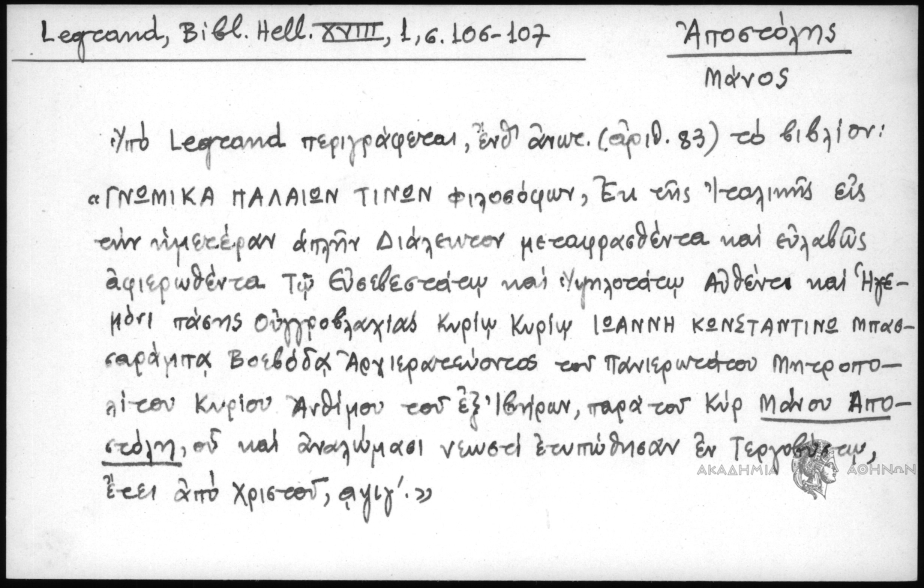 Legrand, Bibl. Hell. XVIII, 1, σ. 106-107
Ἀποστόλης
Μάνος
Ὑπό Legrand περιγράφεται, ἔνθ' ἀνωτ. (ἀριθ. 83) τό βιβλίον:
«ΓΝΩΜΙΚΑ ΠΑΛΑΙΩΝ ΤΙΝΩΝ φιλοσόφων, Ἐκ τῆς Ἰταλικῆς εἰς
τήν ἡμετέραν ἁπλῆν Διάλεκτον μεταφρασθέντα καί εὐλαβῶς
ἀφιερωθέντα Τῷ Εὐσεβεστάτῳ καί Ὑψηλοτάτῳ Αὐθέντι καί Ἡγε-
μόνι πάσης Οὑγγροβλαχίας Κυρίῳ Κυρίῳ ΙΩΑΝΝΗ ΚΩΝΣΤΑΝΤΙΝΩ Μπασ-
σαράμπᾳ Βοεβόδᾳ Ἀρχιερατεύοντος τοῦ Πανιερωτάτου Μητροπο-
λίτου Κυρίου Ἀνθίμου τοῦ ἐξ Ἰβήρων, παρά τοῦ Κύρ Μάνου Απο-
στόλη, οὗ καί ἀναλώμασι νεωστί ἐτυπώθησαν ἐν Τεργοβύστῳ,
ἔτει ἀπό Χριστοῦ, ͵αψιγ΄.»
ΑΚΑΔΗΜΙΑ ΑΘΗΝΩΝ